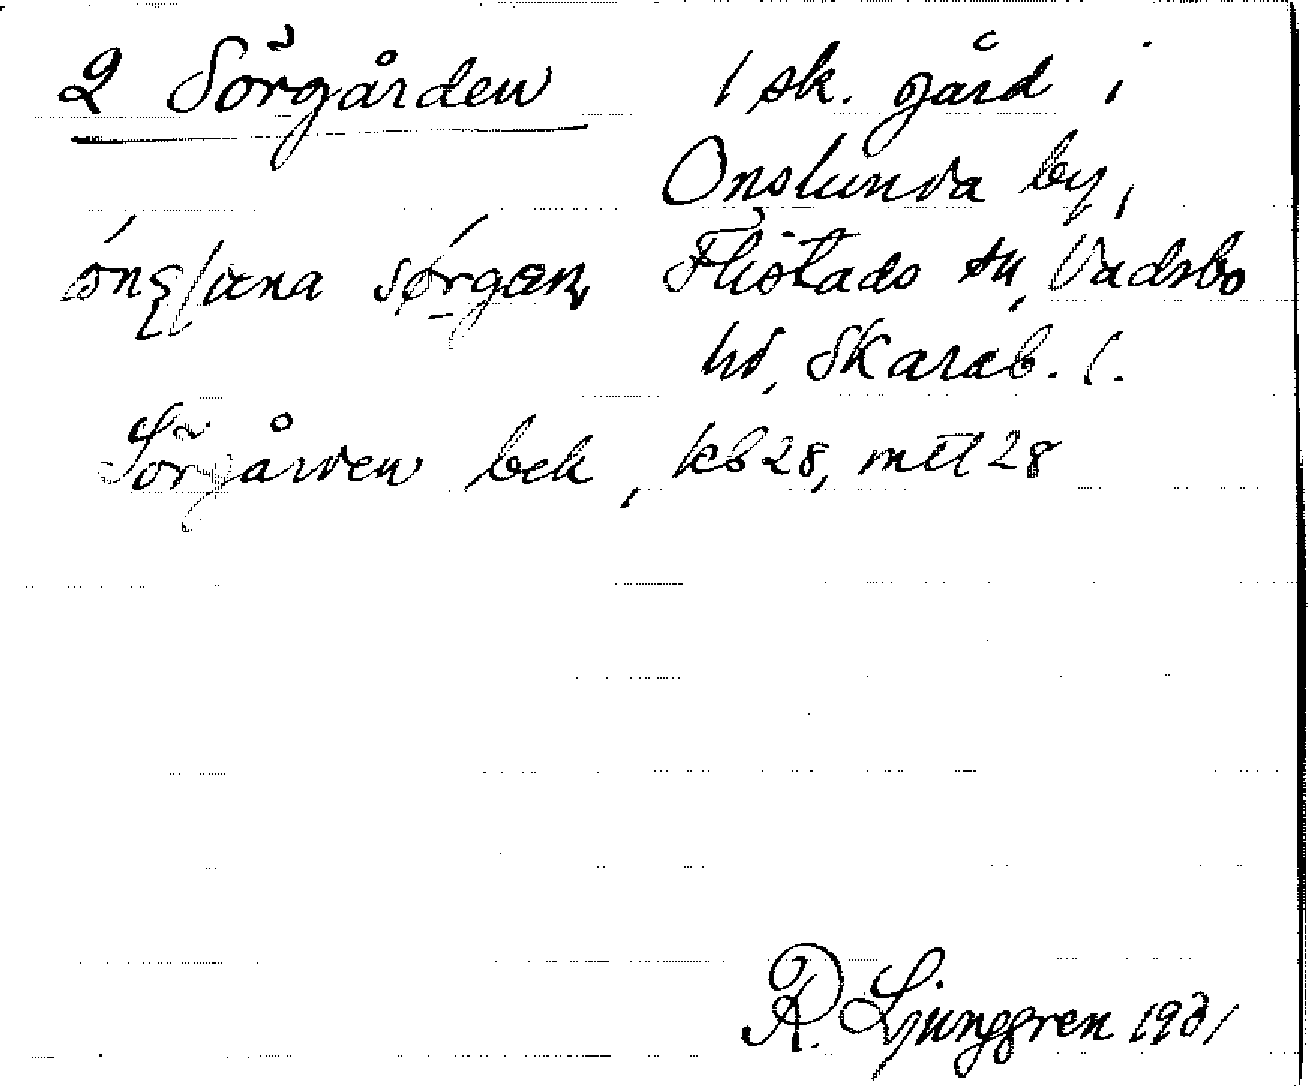 2 Sörgården
1 sk. gård i
Onslunda by,
Flistads sn, Vadsbo
hd, Skarab. l.
Sörgården bek, kb 28, mtl 28
R. Ljunggren 1931